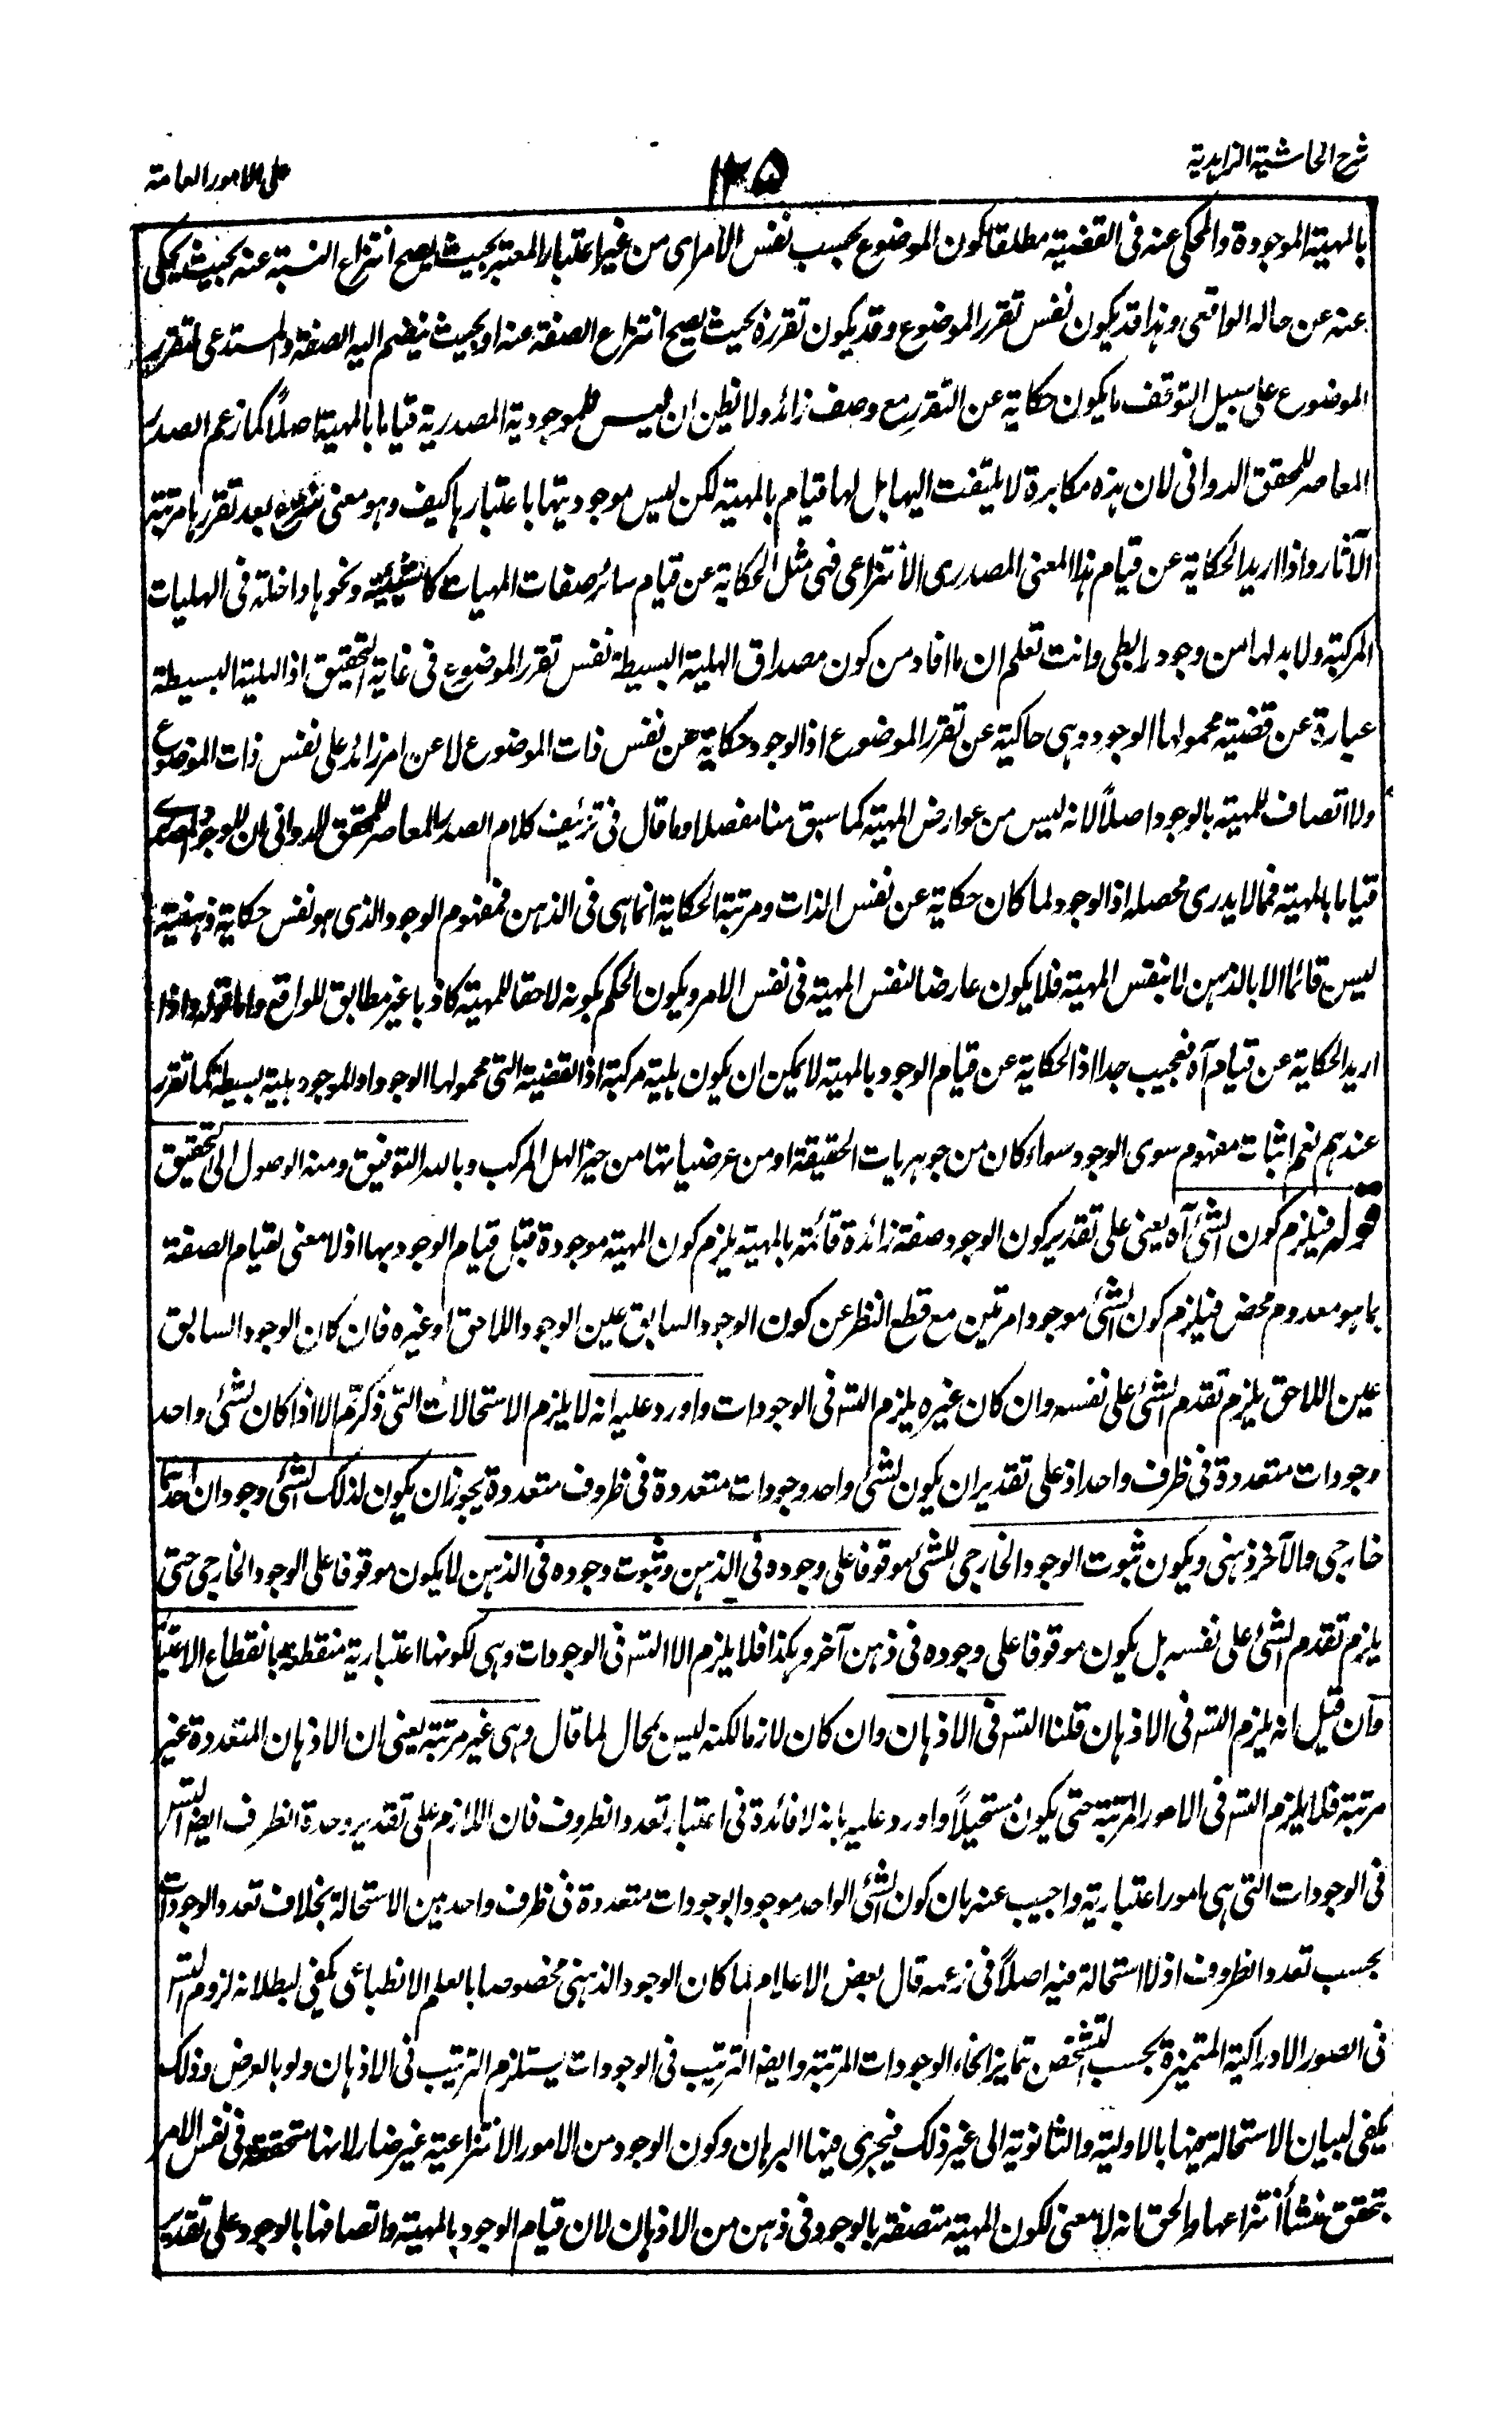 شرح الحاشية الزاهدية
١٣٥
على الامور العامة
بالمهية الموجودة والمحكى عنه فى القضية مطلقا كون الموضوع بحسب نفس الامر اى من غير اعتبار المعتبر بحيث يصح انتزاع النسبة عنه بحيث يحكى
عنه عن حاله الواقعى وهذا قد يكون نفس تقرر الموضوع وقد يكون تقرره بحيث يصح انتزاع الصفة عنه او بحيث ينضم اليه الصفة والمستدعى لتقرر
الموضوع على سبيل التوقف ما يكون حكاية عن التقرر مع وصف زائد ولا نظن ان ليس للموجودية المصدرية قياما بالمهية اصلاً كما زعم الصدر
المعاصر للمحقق الدوانى لان هذه مكابرة لا يلتفت اليها بل لها قيام بالمهية لكن ليس موجوديتها باعتبارها كيف وهو معنى ينتزع بعد تقررها مرتبة
الآثار واذا اريد الحكاية عن قيام هذا المعنى المصدرى الانتزاعى فهى مثل الحكاية عن قيام سائر صفات المهيات كالشيئية ونحوها داخلة فى الهليات
المركبة ولا بد لها من وجود رابطى وانت تعلم ان ما افاد من كون مصداق الهلية البسيطة نفس تقرر الموضوع فى غاية التحقيق اذ الهلية البسيطة
عبارة عن قضية محمولها الوجود وهى حاكية عن تقرر الموضوع اذ الوجود حكاية عن نفس ذات الموضوع لا عن امر زائد على نفس ذات الموضوع
ولا اتصاف للمهية بالوجود اصلاً لانه ليس من عوارض المهية كما سبق منا مفصلا وما قال فى تزئيف كلام الصدر المعاصر للمحقق الدوانى ان للوجود المصدرى
قياما بالمهية فمما لا يدرى محصله اذ الوجود لما كان حكاية عن نفس الذات ومرتبة الحكاية انما هى فى الذهن فمفهوم الوجود الذى هو نفس حكاية ذهنية
ليس قائما الا بالذهن لا بنفس المهية فلا يكون عارضا لنفس المهية فى نفس الامر ويكون الحكم بكونه لاحقا للمهية كاذبا غير مطابق للواقع واما قوله واذا
اريد الحكاية عن قيام آه فعجيب جدا اذ الحكاية عن قيام الوجود بالمهية لا يمكن ان يكون هلية مركبة اذ القضية التى محمولها الوجود او الموجود هلية بسيطة كما تقرر
عندهم نعم اثبات مفهوم سوى الوجود سواء كان من جوهريات الحقيقة او من عرضياتها من حيز الهل المركب وبالله التوفيق ومنه الوصول الى التحقيق
قوله فيلزم كون الشئ آه يعنى على تقدير كون الوجود صفة زائدة قائمة بالمهية يلزم كون المهية موجودة قبل قيام الوجود بها اذ لا معنى لقيام الصفة
بما هو معدوم محض فيلزم كون الشئ موجودا مرتين مع قطع النظر عن كون الوجود السابق عين الوجود اللاحق او غيره فان كان الوجود السابق
عين اللاحق يلزم تقدم الشئ على نفسه وان كان غيره يلزم التسه فى الوجودات واورد عليه انه لا يلزم الاستحالات التى ذكرتم الا اذا كان لشئ واحد
وجودات متعددة فى ظرف واحد اذ على تقدير ان يكون لشئ واحد وجودات متعددة فى ظروف متعددة يجوز ان يكون لذلك الشئ وجودان احدهما
خارجى والآخر ذهنى ويكون ثبوت الوجود الخارجى للشئ موقوفا على وجوده فى الذهن وثبوت وجوده فى الذهن لا يكون موقوفا على الوجود الخارجى حتى
يلزم تقدم الشئ على نفسه بل يكون موقوفا على وجوده فى ذهن آخر وهكذا فلا يلزم الا التسه فى الوجودات وهى لكونها اعتبارية منقطعة بانقطاع الاعتبار
وان قيل انه يلزم التسه فى الاذهان قلنا التسه فى الاذهان وان كان لازما لكنه ليس بمحال لما قال وهى غير مرتبة يعنى ان الاذهان المتعددة غير
مرتبة فلا يلزم التسه فى الامور المرتبة حتى يكون مستحيلاً واورد عليه بانه لا فائدة فى اعتبار تعدد الظروف فان اللازم على تقدير وحدة الظرف ايضا التسه
فى الوجودات التى هى امور اعتبارية واجيب عنه بان كون الشئ الواحد موجودا بوجودات متعددة فى ظرف واحد بين الاستحالة بخلاف تعدد الوجودات
بحسب تعدد الظروف اذ لا استحالة فيه اصلاً فى زعمه قال بعض الاعلام لما كان الوجود الذهنى مخصوصا بالعلم الانطباعى يكفى لبطلانه لزوم التسه
فى الصور الادراكية المتميزة بحسب التشخص تمايز انحاء الوجودات المرتبة وايضا الترتيب فى الوجودات يستلزم الترتيب فى الاذهان ولو بالعرض وذلك
يكفى لبيان الاستحالة بينها بالاولية والثانوية الى غير ذلك فيجرى فيها البرهان وكون الوجود من الامور الانتزاعية غير ضار لانها متحققة فى نفس الامر
بتحقق منشأ انتزاعها والحق انه لا معنى لكون المهية متصفة بالوجود فى ذهن من الاذهان لان قيام الوجود بالمهية واتصافها بالوجود على تقدير